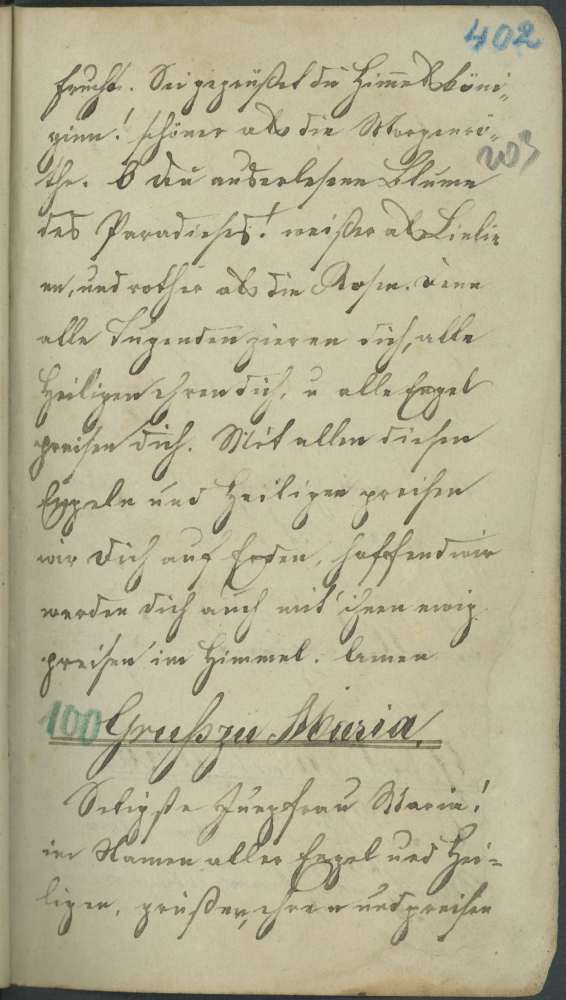 402
frucht. Sei gegrüßet du Himmelsköni-
ginn! schöner als die Morgenrö-
203
the. O du auserlesene Blume
des Paradieses! weißer als Lielie
en, und rother als die Rosen. Denn
alle Tugenden zieren dich, alle
Heiligen ehren dich, u alle Engel
preisen dich. Mit allen diesen
Engeln und Heiligen preisen
wir dich auf Erden, hoffend wir
werden dich auch mit ihnen ewig
preisen im Himmel. Amen
100 Gruß zu Maria.
Seligste Jungfrau Maria!
im Namen aller Engel und Hei-
ligen, grüßen, ehren und preisen